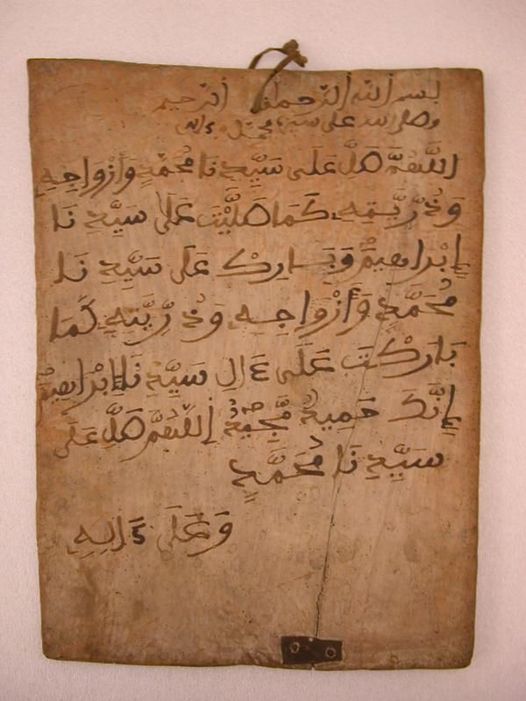 بسم الله الرحمان الرحيم
وصلى الله على سيدنا محمد وءاله
اللَّهُمَّ صَلِّ عَلَى سَيِّدِ نَا مُحَمَّدٍ وَأَزْوَاجِهِ
وَذُرِّيَّتِهِ كَمَا صَلَّيْتَ عَلَى سَيِّدِ نَا
إِبْرَاهِيمَ وَبَارِكْ عَلَى سَيِّدِ نَا
مُحَمَّدٍ وَأَزْوَاجِهِ وَذُرِّيَّتِهِ كَمَا
بَارَكْتَ عَلَى ءَالِ سَيِّدِ نَا إِبْرَاهِيمَ
إِنَّكَ حَمِيدٌ مَّجِيدٌ اللَّهُمَّ صَلِّ عَلَى
سَيِّدِ نَا مُحَمَّدٍ
وَعَلَى ءَالِهِ